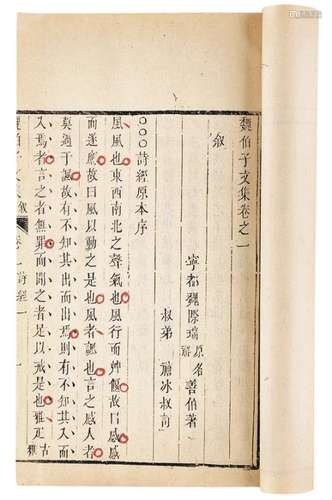 魏伯子文集卷之一
寧都魏際瑞原名祥善伯著
叔弟禧冰叔訂
敘
○○○詩經原本序
風風也東西南北之聲氣也風行而艸偃故曰感感
而遂應故曰風以動之是也風者諷也言之感人者
莫過于諷故有不知其出而出焉則有不知其入而
入焉者言之者無罪而聞之者足以戒是也雅